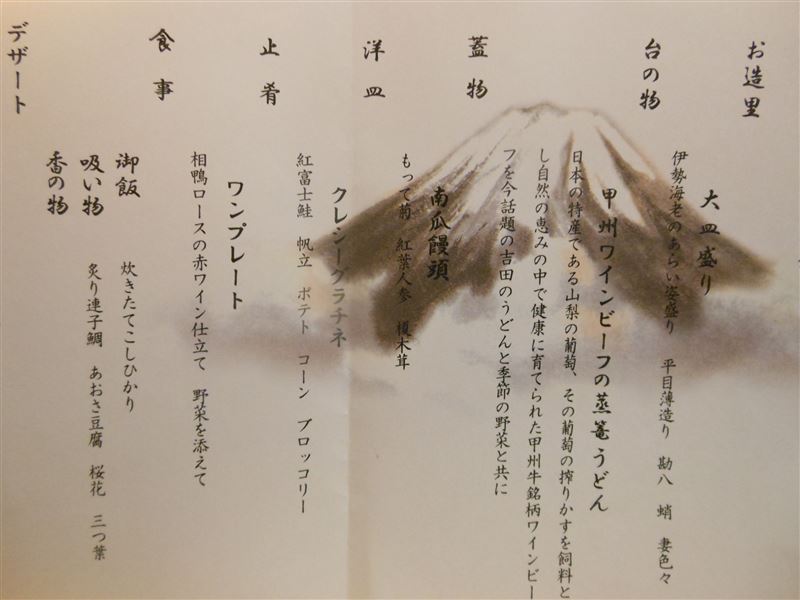 お造里
大皿盛り
伊勢海老のあらい姿盛り 平目薄造り 勘八 蛸 妻色々
台の物
甲州ワインビーフの蒸篭うどん
日本の特産である山梨の葡萄、その葡萄の搾りかすを飼料と
し自然の恵みの中で健康に育てられた甲州牛銘柄ワインビー
フを今話題の吉田のうどんと季節の野菜と共に
蓋物
南瓜饅頭
もって菊 紅葉人参 榎木茸
洋皿
クレシーグラチネ
紅富士鮭 帆立 ポテト コーン ブロッコリー
止肴
ワンプレート
相鴨ロースの赤ワイン仕立て 野菜を添えて
食事
御飯 炊きたてこしひかり
吸い物 炙り連子鯛 あおさ豆腐 桜花 三つ葉
香の物
デザート